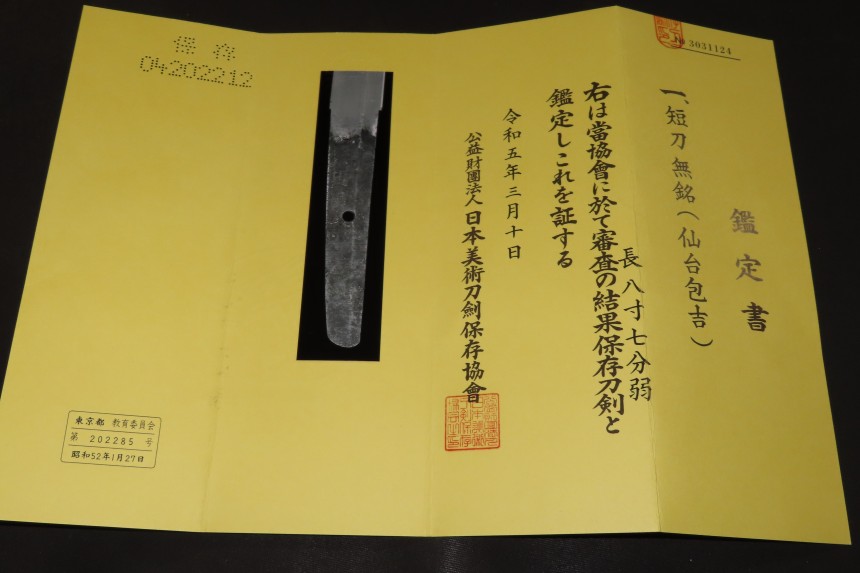 № 3031124
鑑定書
一、短刀 無銘(仙台包吉)
長 八寸七分弱
右は當協會に於て審査の結果保存刀剣と
鑑定しこれを証する
令和五年三月十日
公益財團法人 日本美術刀劍保存協會
保存
04202212
東京都 教育委員会
第 202285 号
昭和52年1月27日